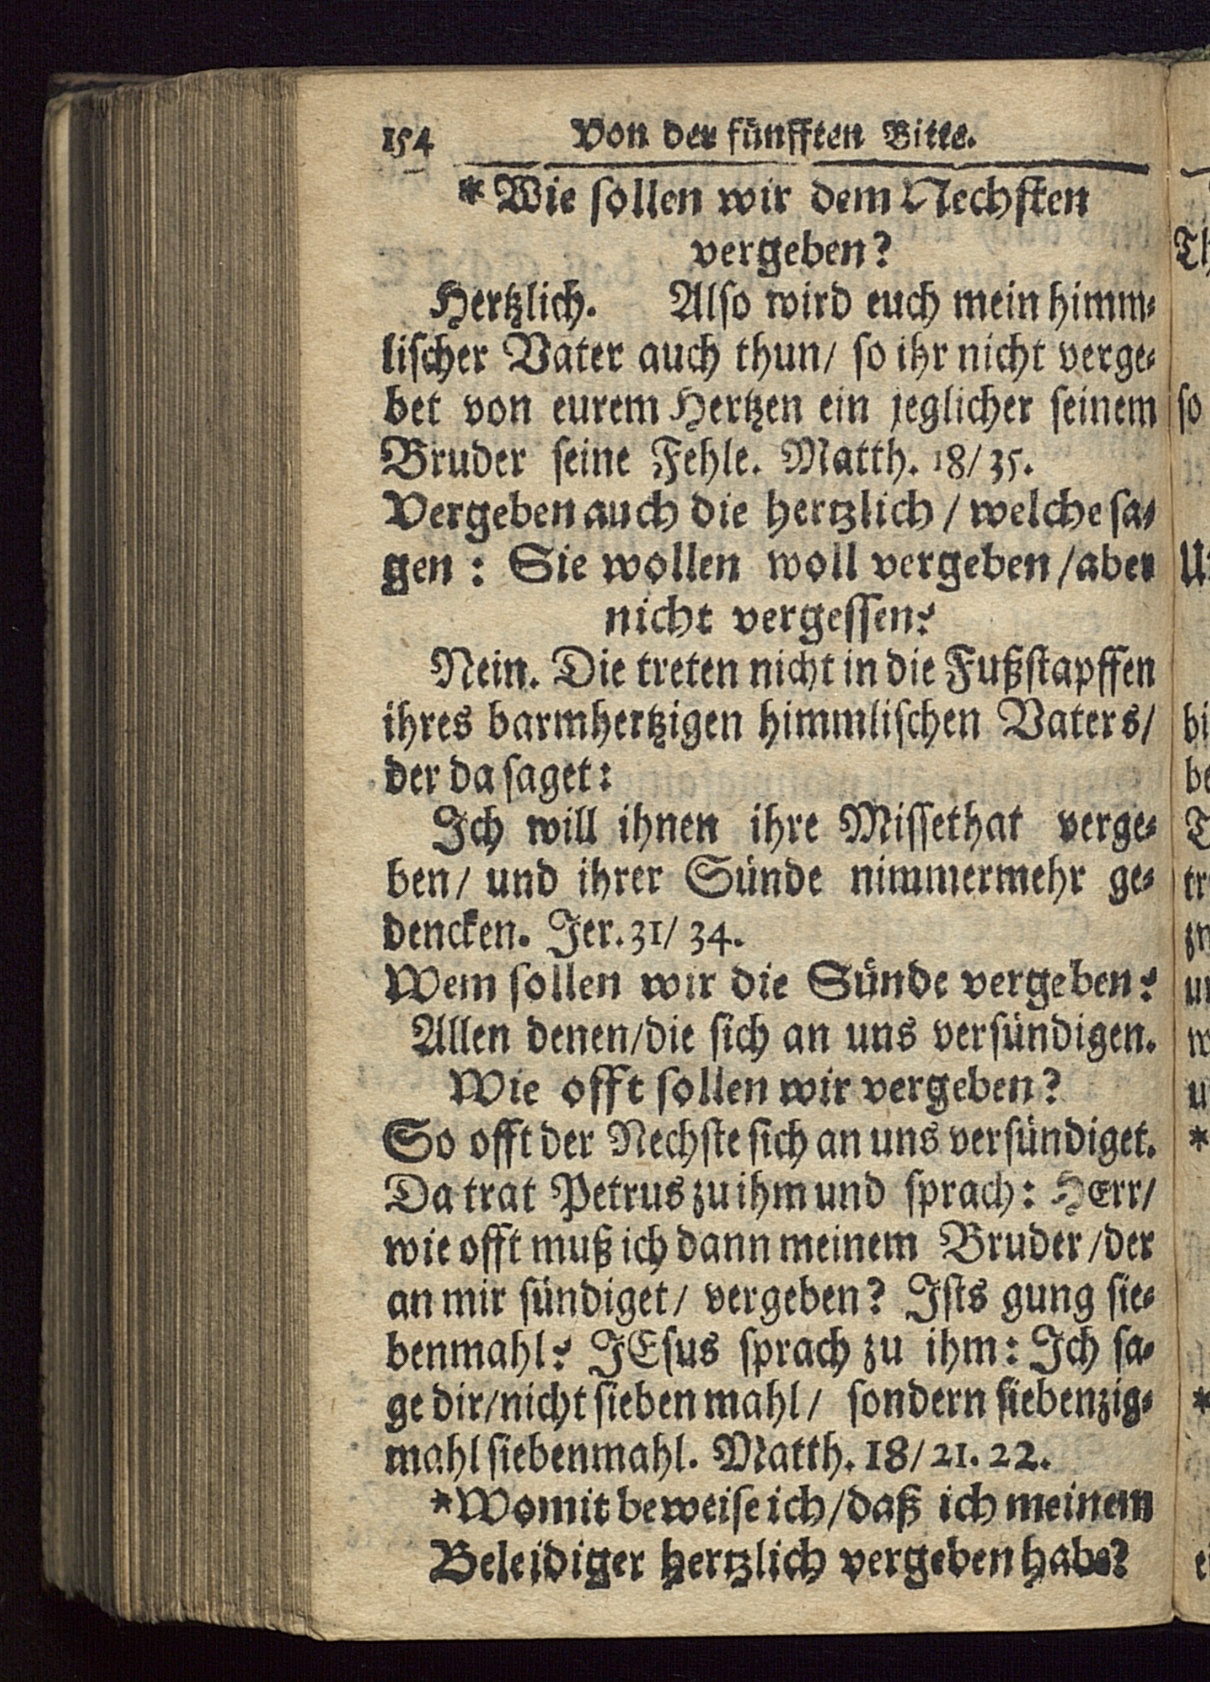 154 Von der fünfften Bitte.
*Wie sollen wir dem Nechsten
vergeben?
Hertzlich. Also wird euch mein himm-
lischer Vater auch thun/ so ihr nicht verge-
bet von eurem Hertzen ein jeglicher seinem
Bruder seine Fehle. Matth. 18/35.
Vergeben auch die hertzlich/ welche sa-
gen: Sie wollen woll vergeben/aber
nicht vergessen?
Nein. Die treten nicht in die Fußstapffen
ihres barmhertzigen himmlischen Vaters/
der da saget:
Ich will ihnen ihre Missethat verge-
ben/ und ihrer Sünde nimmermehr ge-
dencken. Jer. 31/ 34.
Wem sollen wir die Sünde vergeben?
Allen denen/die sich an uns versündigen.
Wie offt sollen wir vergeben?
So offt der Nechste sich an uns versündiget.
Da trat Petrus zu ihm und sprach: HErr/
wie offt muß ich dann meinem Bruder/der
an mir sündiget/ vergeben? Ists gung sie-
benmahl? JEsus sprach zu ihm: Ich sa-
ge dir/nicht sieben mahl/ sondern siebenzig-
mahl siebenmahl. Matth. 18/21. 22.
*Womit beweise ich/daß ich meinem
Beleidiger hertzlich vergeben habe?